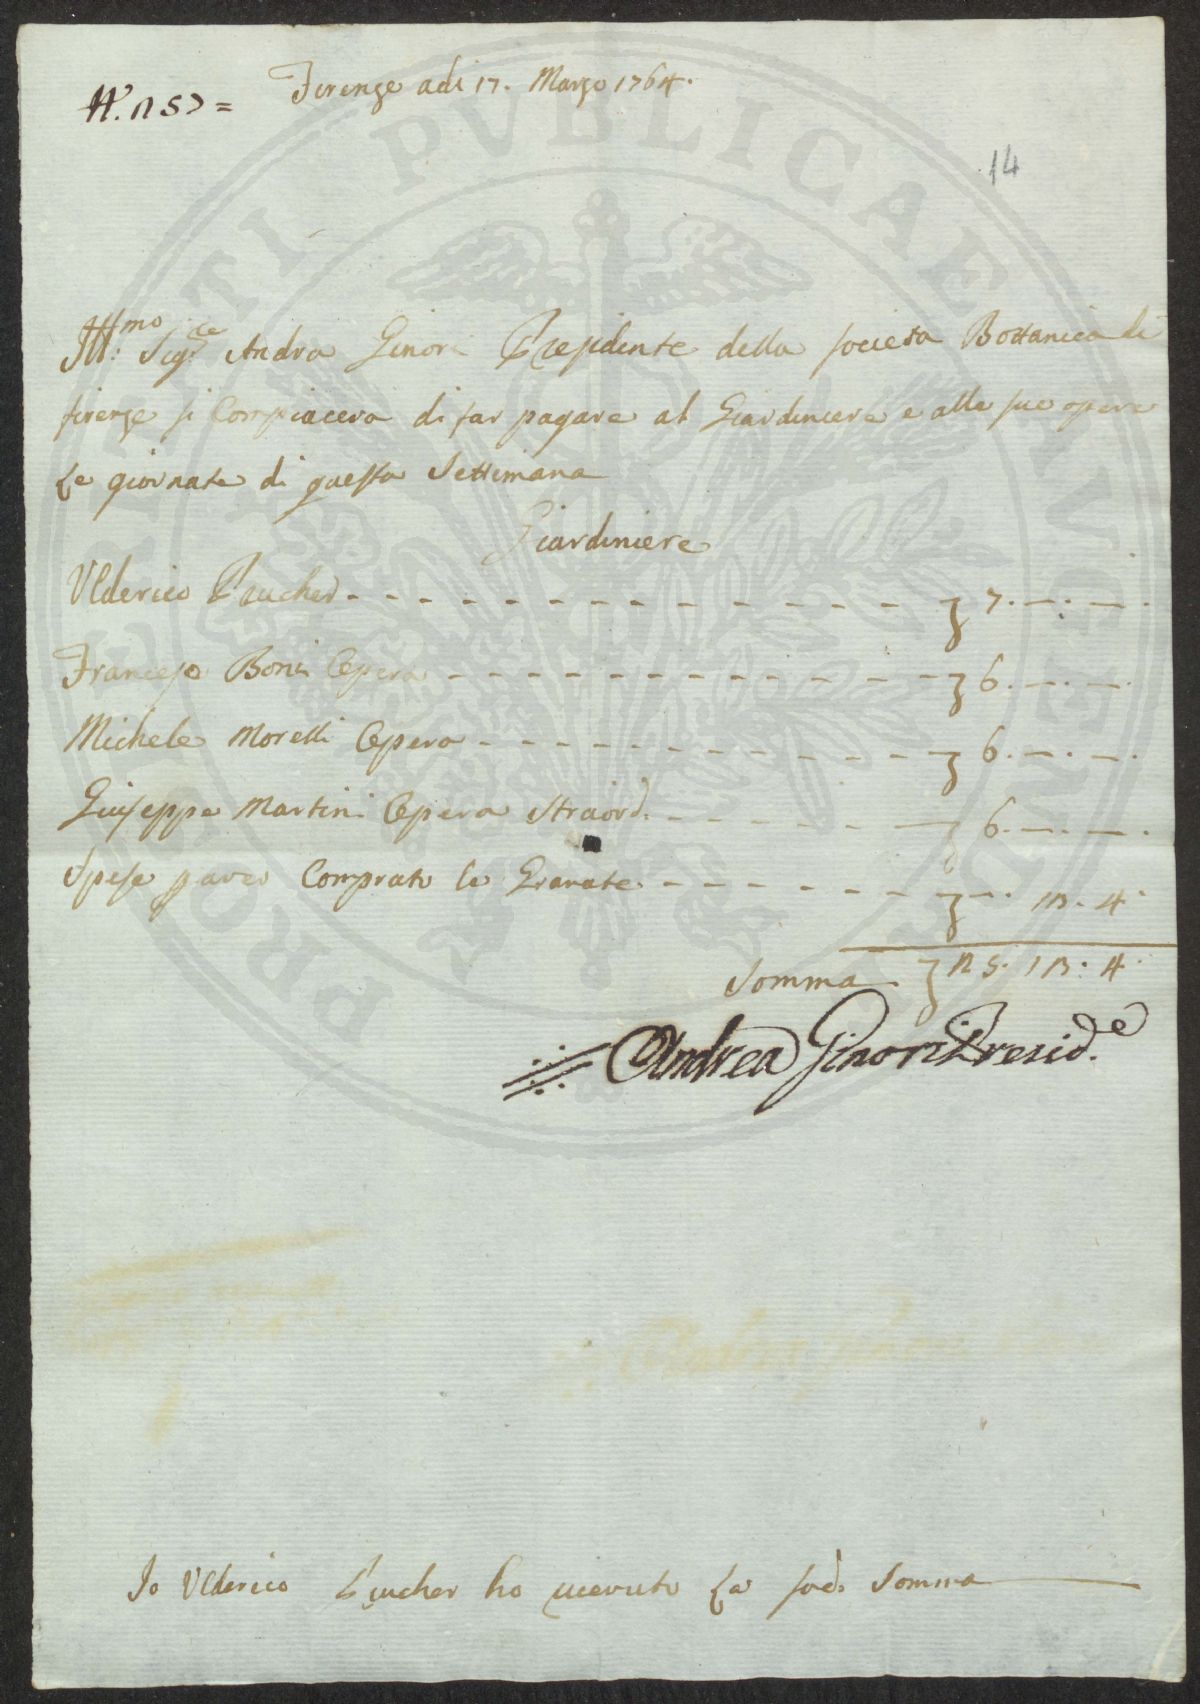 N.° 257 =
Firenze adi 17. Marzo 1764.
14
Ill:mo Sigre Andra Ginori Presidente della società Bottanica di
firenze si Compiacera di far pagare al Giardiniere e alle sue opere
Le giornate di questa Settimana
Giardiniere
Ulderico Prucher - - - - - - - - - - - - - - - - ʒ 7. —. —.
Francesco Boni Opera - - - - - - - - - - - - - ʒ 6. —. —.
Michele Morelli Opera - - - - - - - - - - - - ʒ 6. —. —.
Giuseppe Martini Opera Straord. - - - - - - - ʒ 6. —. —.
Spese p aver Comprato le Granate - - - - - - - ʒ —. 13. 4.
Somma ʒ 25. 13. 4.
Andrea Ginori Presid.e
Io Ulderico Prucher ho riceuto La sud. Somma
PROSPERITATI PVBLICAE AVGENDAE